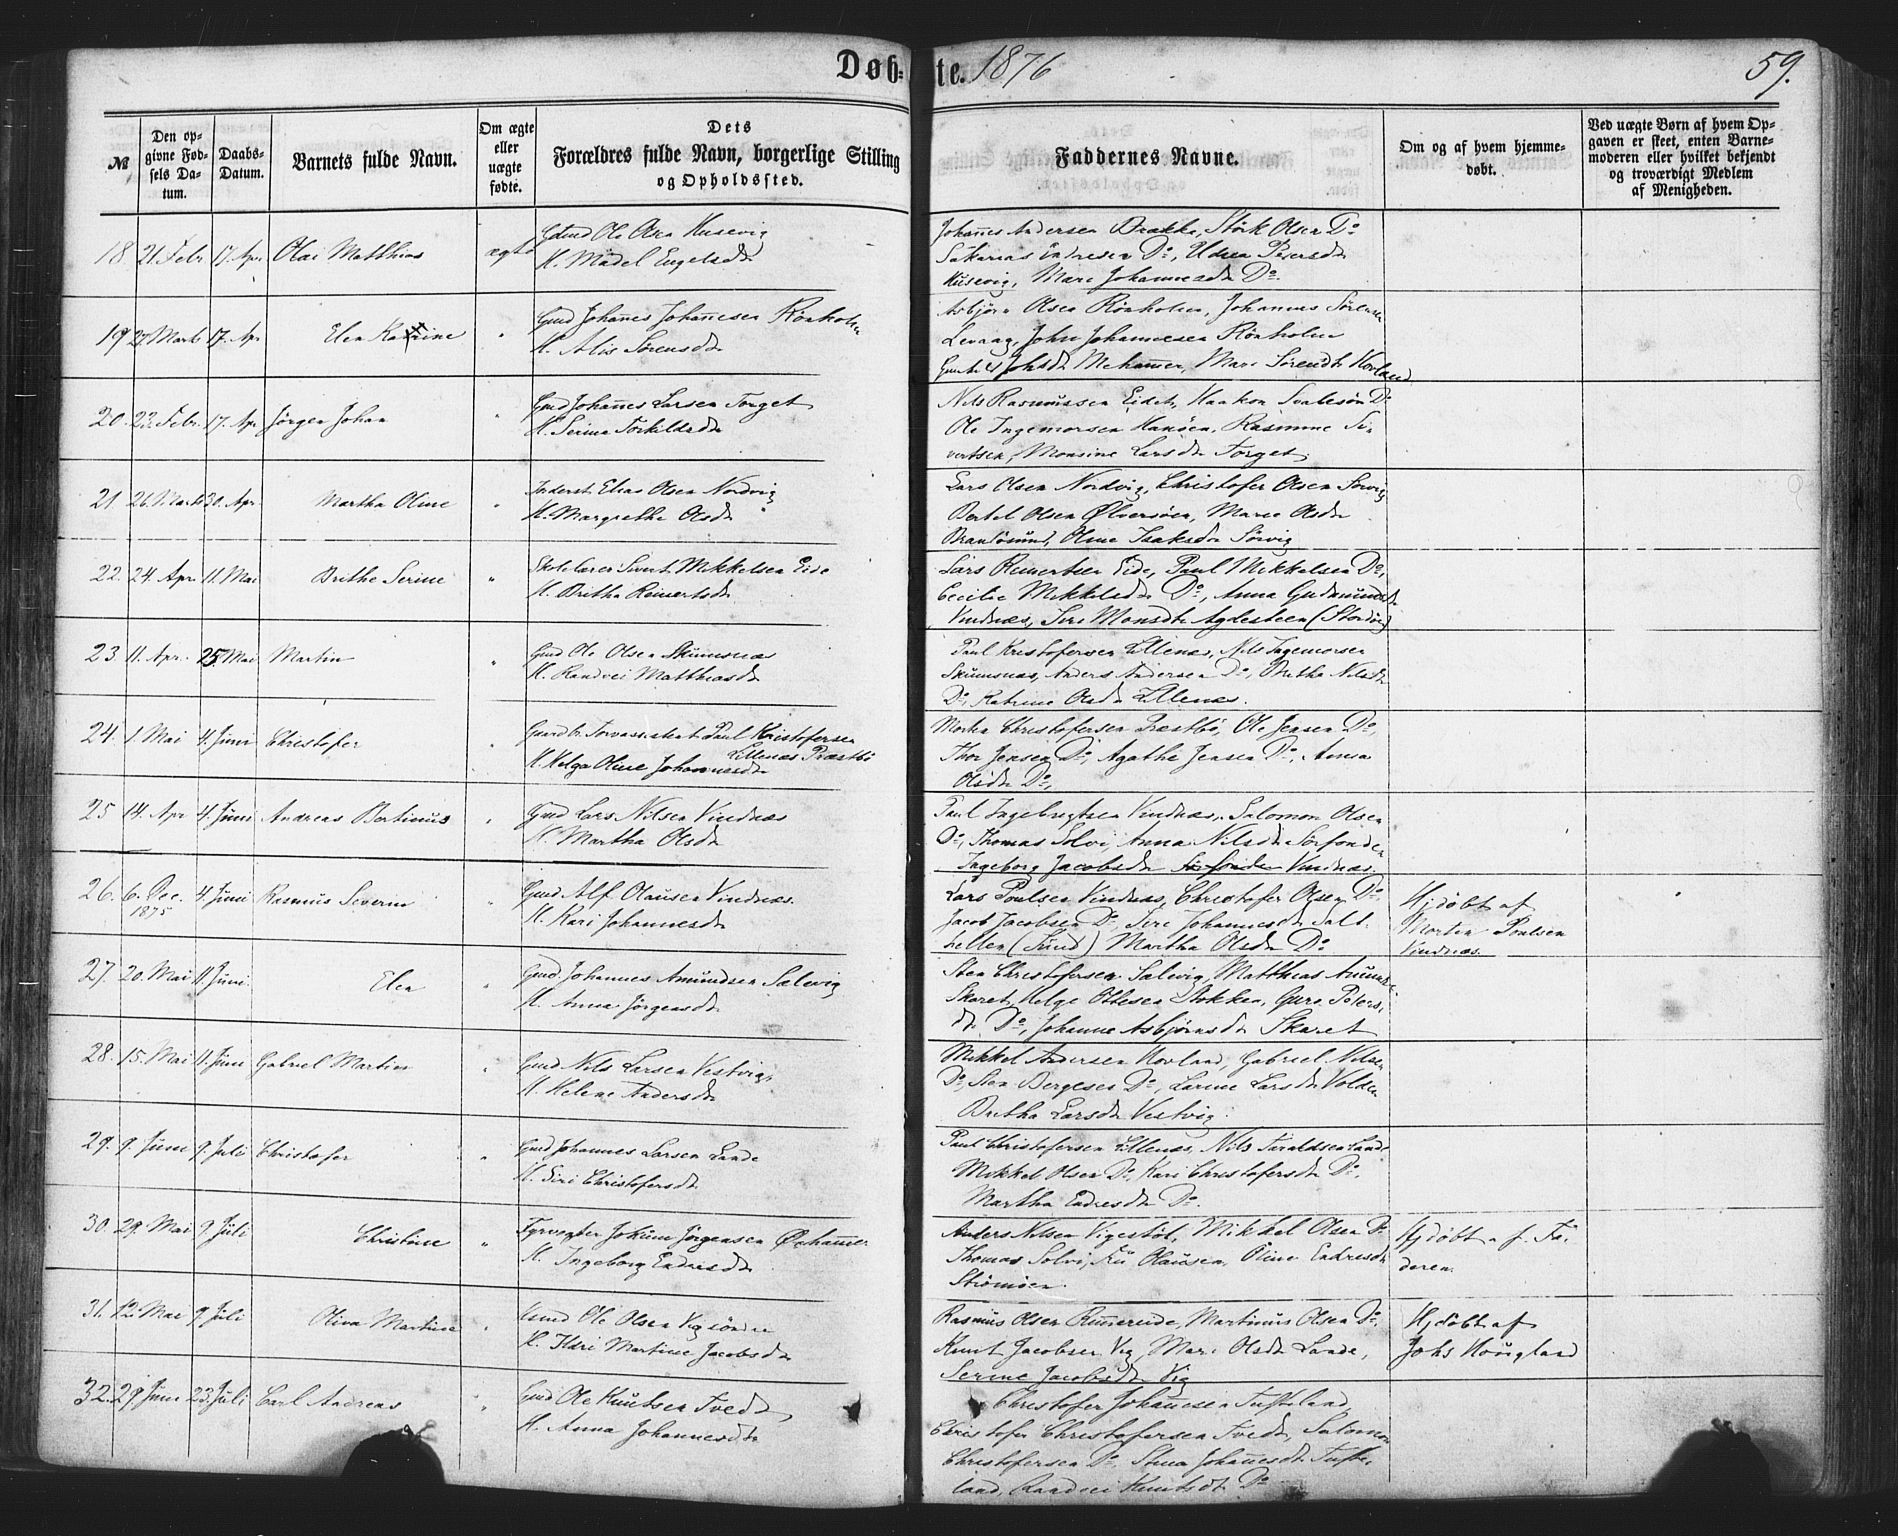 Døb= te. 1876 59.
№
Den op-
givne Fød-
sels Da-
tum.
Daabs-
Datum.
Barnets fulde Navn.
Om ægte
eller
uægte
fødte.
Dets
Forældres fulde Navn, borgerlige Stilling
og Opholdssted.
Faddernes Navne.
Om og af hvem hjemme-
døbt.
Ved uægte Børn af hvem Op-
gaven er skeet, enten Barne-
moderen eller hvilket bekjendt
og troværdigt Medlem
af Menigheden.
18. 21. Febr. 17. Apr. Olai Matthias ægte
Gmd Ole Husevig
H. Madel Engelsdtr
Johannes Andersen Brakke, Störk Olsen Do
Sakarias Endresen Do, Petersdtr
Husevig, Mari Johannesdtr Do.
19 27. Marts 17. Apr Elen Katrine "
Gmd Johannes Johannesen Rönholm
H. Alis Sörensdtr
Asbjörn Olsen Rönholm, Johannes Sörensen
Levaag, John Johannesen Rönholm
Johsdtr Mehammer, Mari Sörensdtr Hovland
20. 22. Febr. 17. Apr Jörgen Johan "
Gmd Johannes Larsen Torget
H. Serina Torkildsdtr
Nils Rasmussen Eidet, Haakon Do
Ole Ingemorsen Rasmine Si-
vertsen, Monsine Larsdtr Torget
21 26. Marts 30. Apr Martha Oline "
Inderst Elias Olsen Nordvig
H. Margrethe Olsdtr
Lars Olsen Nordvig, Christofer Olsen Sörvig
Bertel Olsen Ölversöen, Marie Olsdtr
Brandösund, Oline Isaksdtr Sörvig
22. 24. Apr. 11. Mai Brithe Serine "
Skolelærer Sivert Mikkelsen Eide
H. Britha Reinertsdtr
Lars Reinertsen Eide, Paul Mikkelsen Do,
Cecilie Mikkelsdtr Do, Anna Gudmundsdtr
Vindnæs, Siri Monsdtr Agdesteen (Stordöen)
23. 11. Apr. 25. Mai Martin "
Gmd Ole Olsen Skumsnæs
H. Randvei Matthiasdtr
Paul Kristofersen Lillenæs, Nils Ingemorsen
Skumsnæs, Anders Andersen Do, Britha Nilsdtr
Do, Katrine Olsdtr Lillenæs.
24. 1. Mai 4. Juni Christofer "
Paul Kristofersen
Lillenæs Præstbö
H. Helga Oline Johannesdtr
Morten Christofersen Præstbö, Ole Jensen Do,
Thor Jensen Do, Agathe Jensen Do, Anna
Olsdtr Do,
25 14. Apr 4. Juni Andreas Bertinus "
Gmd Lars Nilsen Vindnæs
H. Martha Olsdtr
Paul Ingebrigtsen Vindnæs, Salomon Olsen
Do, Thomas Solvi, Anna Nilsdtr Sörfonden
Ingeborg Jacobsdtr Vindnæs.
26. 6. Dec. 4. Juni Rasmus Severin "
1875
Gmd Alf Olausen Vindnæs.
H. Kari Johannesdtr
Lars Poulsen Vindnæs, Christofer Olsen Do
Jacob Jacobsen Do, Siri Johannesdtr Salt-
hellen (Sund) Martha Olsdtr Do
Hjdöbt af
Morten Poulsen
Vindnæs.
27. 20. Mai 11 Juni. Elen "
Gmd Johannes Amundsen Sælevig
H. Anna Jörgensdtr
Sten Christofersen Sælevig, Matthias
Skaret, Helge Ottesen Stokken, Guro Peters-
dtr Do, Johanne Asbjörnsdtr Skaret
28. 15. Mai 11. Juni Gabriel Martin "
Gmd Nils Larsen Vestvig
H. Helene Andersdtr
Mikkel Andersen Hovland, Gabriel Nilsen
Do, Sten Bergesen Do, Larine Larsdtr Volden
Britha Larsdtr Vestvig.
29. 9. Juni 9. Juli Christofer "
Gmd Johannes Larsen Lande
H. Siri Christofersdtr
Paul Christofersen Lillenæs, Nils Taraldsen Lande
Mikkel Olsen Do, Kari Christofersdtr Do,
Martha Endresdtr Do.
30. 29. Mai 9 Juli Christine "
Fyrvogter Jokum Jörgensen
H. Ingeborg Endresdtr
Anders Nilsen Vigestöl, Mikkel Olsen Do
Thomas Solvi, Olausen, Oline Endresdtr
Strömöen.
Hjdöbt af Fa-
deren.
31. 12. Mai 9 Juli Oliva Martine "
Gmd Ole Olsen
H. Ildri Martine Jacobsdtr
Rasmus Olsen Rimmereide, Martinus Olsen Do
Knut Jacobsen Vig, Mari Olsdtr Lande,
Serine Jacobsdtr Vig
Hjdöbt af
Johs Hougland
32. 29 Juni 23. Juli Carl Andreas "
Gmd Ole Knutsen Tvedt
H. Anna Johannesdtr
Christofer Johannesen Tufteland,
Christofer Christofersen Tvedt, Salomon
Christofersen Do, Stina Johannesdtr Tufte-
land, Randvei Knutsdtr Do